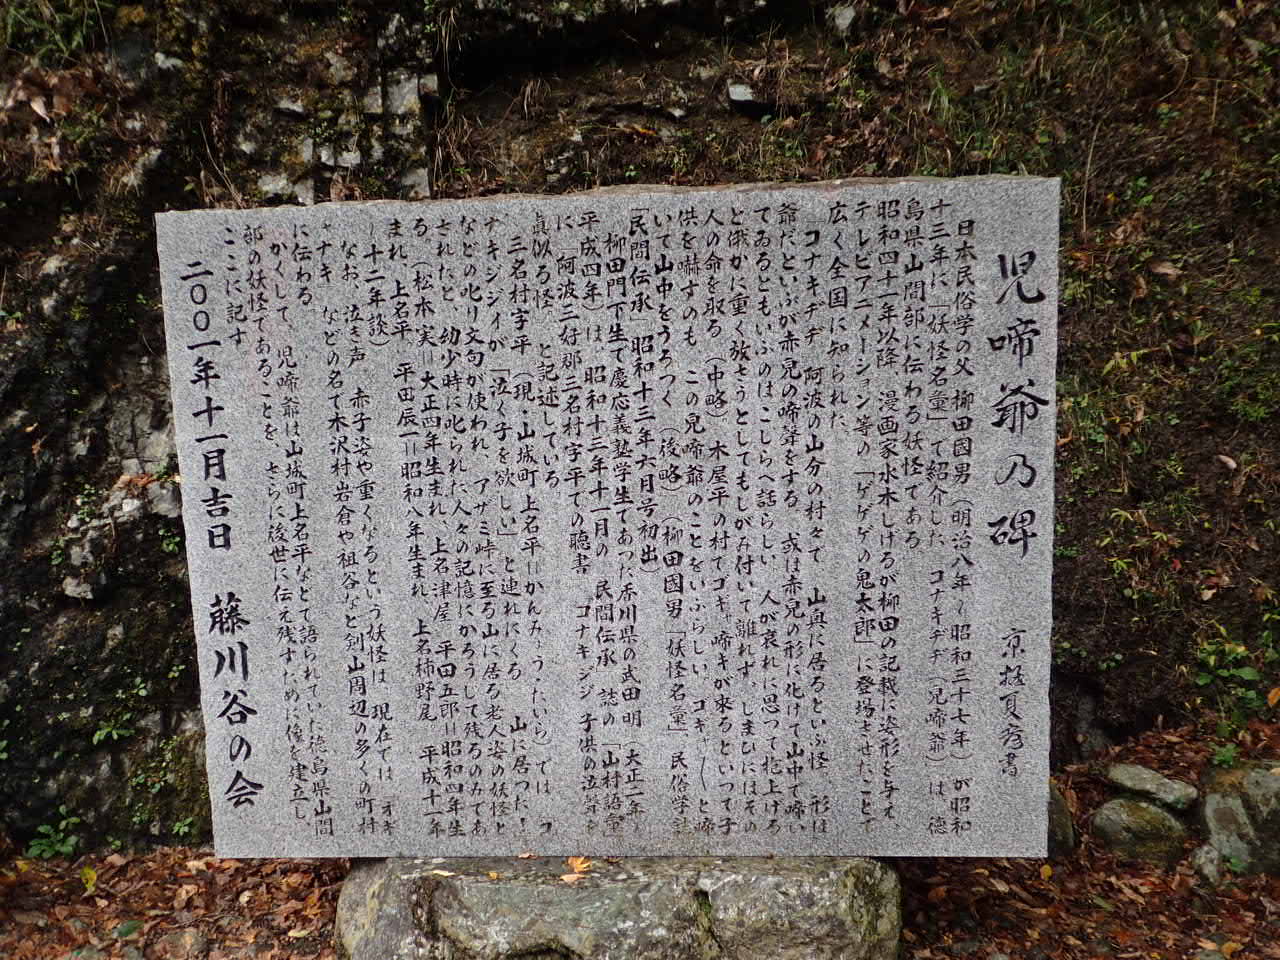 児啼爺乃碑 京極夏彦書
日本民俗学の父 柳田國男（明治八年～昭和三十七年）が昭和
十三年に「妖怪名彙」で紹介した コナキヂヂ（児啼爺）は 徳
島県山間部に伝わる妖怪である
昭和四十一年以降 漫画家水木しげるが柳田の記載に姿形を与え、
テレビアニメーション等の「ゲゲゲの鬼太郎」に登場させたことで
広く全国に知られた、
「コナキヂヂ 阿波の山分の村々で 山奥に居るといふ怪 形は
爺だといふが赤児の啼聲をする 或は赤児の形に化けて山中で啼い
てゐるともいふのはこしらへ話らしい 人が哀れに思つて抱上げる
と俄かに重く放さうとしてもしがみ付いて離れず しまひにはその
人の命を取る （中略）木屋平の村でゴギャ啼キが来るといつて子
供を嚇すのも この児啼爺のことをいふらしい ゴギャ〱〱と啼
いて山中をうろつく （後略）（柳田國男「妖怪名彙」民俗学誌
「民間伝承」昭和十三年六月号初出）
柳田門下生で慶応義塾学生であった香川県の武田明（大正二年～
平成四年）は、昭和十三年十一月の 民間伝承 誌の「山村語彙」
に「阿波三好郡三名村字平での聽書 コナキシジ 子供の泣聲を
眞似る怪 と記述している
三名村字平（現・山城町 上名平＝かんみょう・たいら）では コ
ナキシジイが「泣く子を欲しい」と連れにくる 山に居った！
などの叱り文句が使われ、アザミ峠に至る山に居る老人姿の妖怪と
されたと、幼少時に叱られた人々の記憶にかろうじて残るのみであ
る、（松本 実＝大正四年生まれ、上名津屋 平田五郎＝昭和四年生
まれ、上名平 平田辰一＝昭和八年生まれ、上名柿野尾 平成十一年
～十二年談）
なお、泣き声 赤子姿や重くなるという妖怪は、現在では「オギ
ャナキ などの名で木沢村岩倉や祖谷など剣山周辺の多くの町村
に伝わる
かくして、児啼爺は山城町上名平などで語られていた徳島県山間
部の妖怪であることを、さらに後世に伝え残すために像を建立し、
ここに記す
二〇〇一年十一月吉日 藤川谷の会